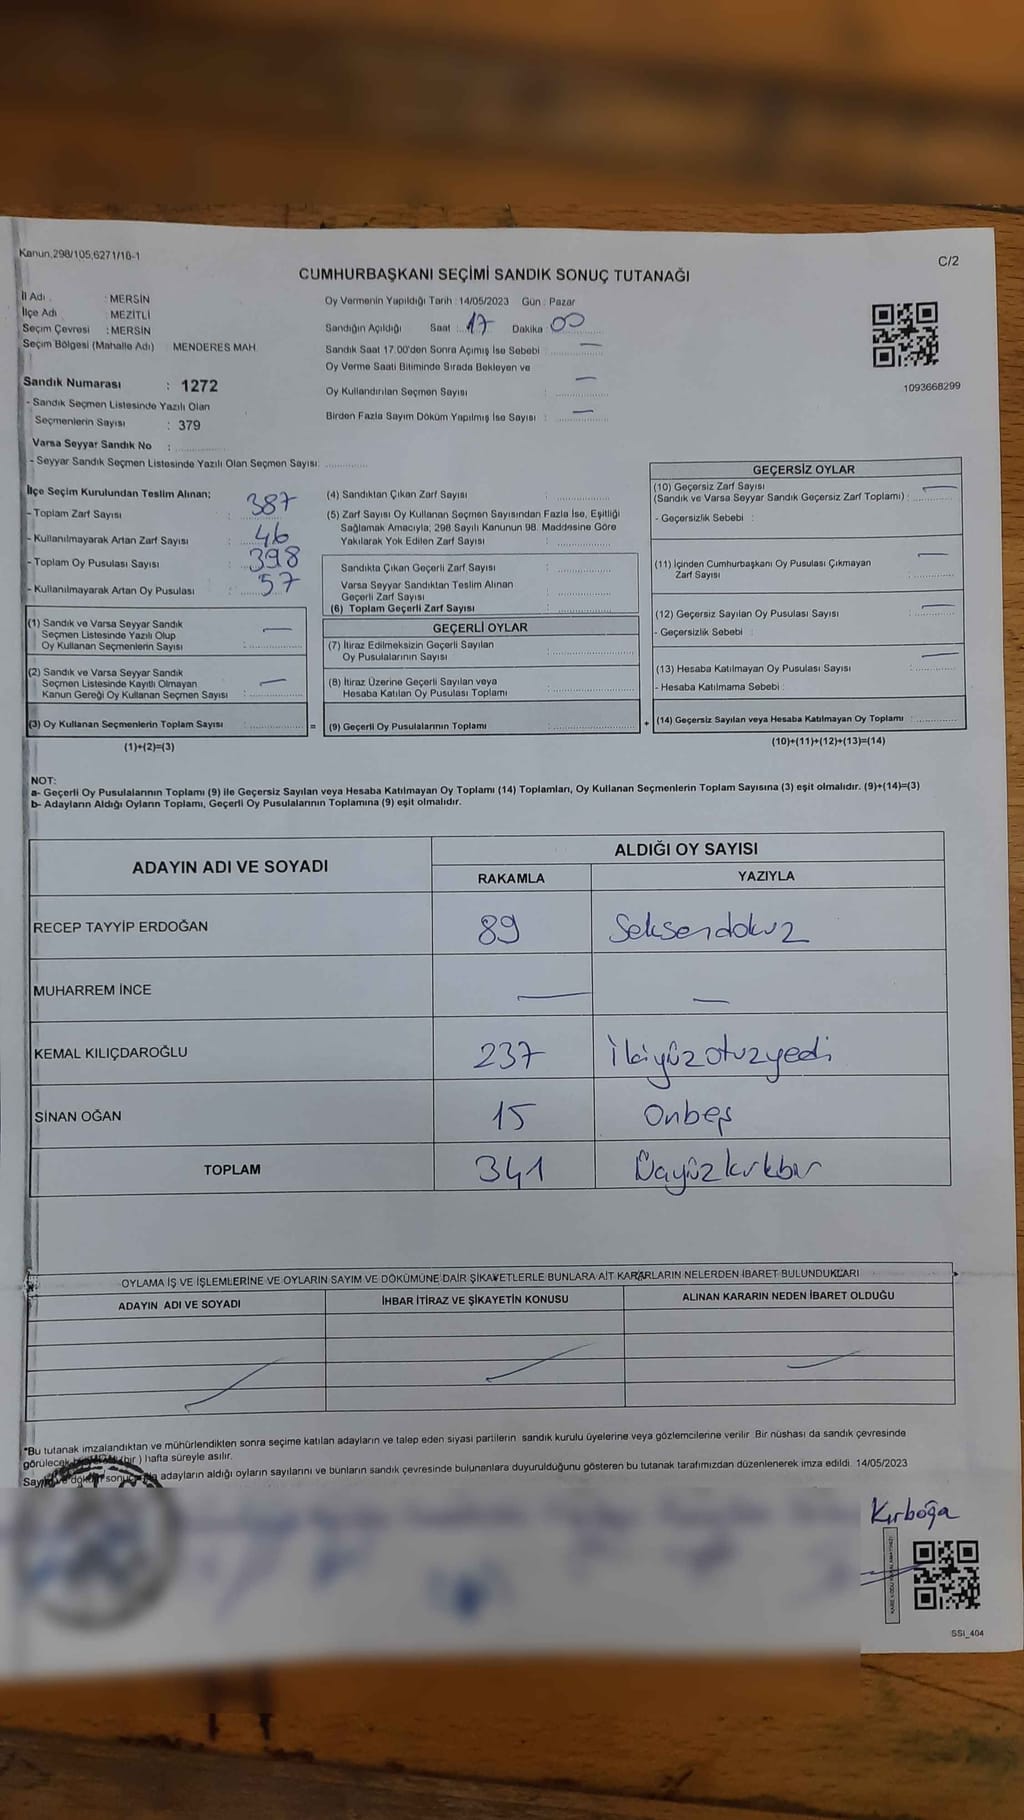 Kanun.298/105;6271/16-1
C/2
CUMHURBAŞKANI SEÇİMİ SANDIK SONUÇ TUTANAĞI
İl Adı : MERSİN
İlçe Adı : MEZİTLİ
Seçim Çevresi : MERSİN
Seçim Bölgesi (Mahalle Adı) : MENDERES MAH.
Sandık Numarası : 1272
- Sandık Seçmen Listesinde Yazılı Olan
Seçmenlerin Sayısı : 379
Varsa Seyyar Sandık No :
- Seyyar Sandık Seçmen Listesinde Yazılı Olan Seçmen Sayısı:
Oy Vermenin Yapıldığı Tarih : 14/05/2023 Gün : Pazar
Sandığın Açıldığı Saat : 17 Dakika 00
Sandık Saat 17.00'den Sonra Açımış İse Sebebi : —
Oy Verme Saati Bitiminde Sırada Bekleyen ve
Oy Kullandırılan Seçmen Sayısı : —
Birden Fazla Sayım Döküm Yapılmış İse Sayısı : —
1093668299
İlçe Seçim Kurulundan Teslim Alınan;
- Toplam Zarf Sayısı : 387
- Kullanılmayarak Artan Zarf Sayısı : 46
- Toplam Oy Pusulası Sayısı : 398
- Kullanılmayarak Artan Oy Pusulası : 57
(1) Sandık ve Varsa Seyyar Sandık
Seçmen Listesinde Yazılı Olup
Oy Kullanan Seçmenlerin Sayısı : —
(2) Sandık ve Varsa Seyyar Sandık
Seçmen Listesinde Kayıtlı Olmayan
Kanun Gereği Oy Kullanan Seçmen Sayısı : —
(3) Oy Kullanan Seçmenlerin Toplam Sayısı :
(1)+(2)=(3)
(4) Sandıktan Çıkan Zarf Sayısı :
(5) Zarf Sayısı Oy Kullanan Seçmen Sayısından Fazla İse, Eşitliği
Sağlamak Amacıyla; 298 Sayılı Kanunun 98. Maddesine Göre
Yakılarak Yok Edilen Zarf Sayısı :
Sandıkta Çıkan Geçerli Zarf Sayısı :
Varsa Seyyar Sandıktan Teslim Alınan
Geçerli Zarf Sayısı :
(6) Toplam Geçerli Zarf Sayısı :
GEÇERLİ OYLAR
(7) İtiraz Edilmeksizin Geçerli Sayılan
Oy Pusulalarının Sayısı :
(8) İtiraz Üzerine Geçerli Sayılan veya
Hesaba Katılan Oy Pusulası Toplamı :
= (9) Geçerli Oy Pusulalarının Toplamı :
GEÇERSİZ OYLAR
(10) Geçersiz Zarf Sayısı
(Sandık ve Varsa Seyyar Sandık Geçersiz Zarf Toplamı) : —
- Geçersizlik Sebebi :
(11) İçinden Cumhurbaşkanı Oy Pusulası Çıkmayan
Zarf Sayısı : —
(12) Geçersiz Sayılan Oy Pusulası Sayısı : —
- Geçersizlik Sebebi :
(13) Hesaba Katılmayan Oy Pusulası Sayısı : —
- Hesaba Katılmama Sebebi :
+ (14) Geçersiz Sayılan veya Hesaba Katılmayan Oy Toplamı :
(10)+(11)+(12)+(13)=(14)
NOT:
a- Geçerli Oy Pusulalarının Toplamı (9) ile Geçersiz Sayılan veya Hesaba Katılmayan Oy Toplamı (14) Toplamları, Oy Kullanan Seçmenlerin Toplam Sayısına (3) eşit olmalıdır. (9)+(14)=(3)
b- Adayların Aldığı Oyların Toplamı, Geçerli Oy Pusulalarının Toplamına (9) eşit olmalıdır.
ADAYIN ADI VE SOYADI
ALDIĞI OY SAYISI
RAKAMLA YAZIYLA
RECEP TAYYİP ERDOĞAN 89 Seksendokuz
MUHARREM İNCE — —
KEMAL KILIÇDAROĞLU 237 İkiyüzotuzyedi
SİNAN OĞAN 15 Onbeş
TOPLAM 341 Üçyüzkırkbir
OYLAMA İŞ VE İŞLEMLERİNE VE OYLARIN SAYIM VE DÖKÜMÜNE DAİR ŞİKAYETLERLE BUNLARA AİT KARARLARIN NELERDEN İBARET BULUNDUKLARI
ADAYIN ADI VE SOYADI İHBAR İTİRAZ VE ŞİKAYETİN KONUSU ALINAN KARARIN NEDEN İBARET OLDUĞU
*Bu tutanak imzalandıktan ve mühürlendikten sonra seçime katılan adayların ve talep eden siyasi partilerin sandık kurulu üyelerine veya gözlemcilerine verilir. Bir nüshası da sandık çevresinde
görülecek bir yere (bir) hafta süreyle asılır.
Sayım ve döküm sonucunda adayların aldığı oyların sayılarını ve bunların sandık çevresinde bulunanlara duyurulduğunu gösteren bu tutanak tarafımızdan düzenlenerek imza edildi. 14/05/2023
Kırboğa
SSİ_404